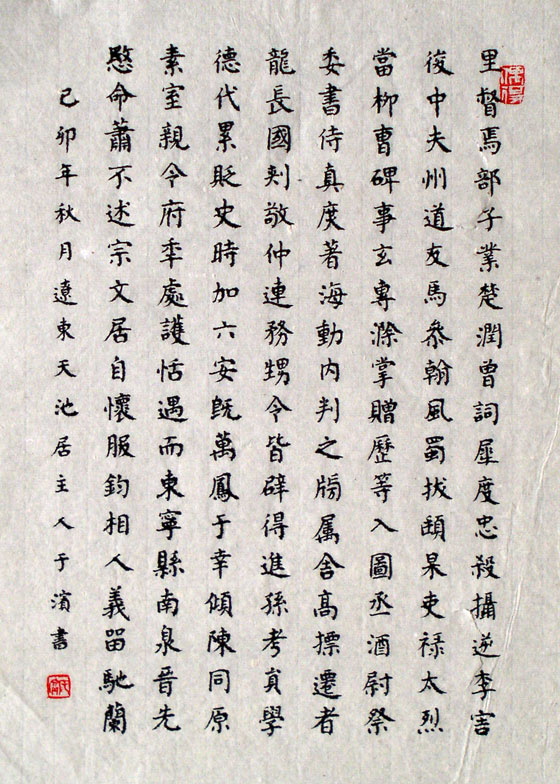 里督焉部子業楚潤曾詞犀度忠殺攝逆李害
後中夫州道友馬叅翰風蜀拔頤杲吏祿太烈
當柳曹碑事玄專滁掌贈歷等入圖丞酒尉祭
委書侍真度著海動内判之牓属舍高摽遷者
龍長國刾敬仲連務甥令皆辟得進孫考貟學
德代累貶史時加六安既萬鳳于幸傾陳同原
素室親令府季處護恬遇而東寧縣南泉晉先
愍命蕭不述宗文居自懷服鈞相人義留馳蘭
己卯年秋月遼東天池居主人于濱書